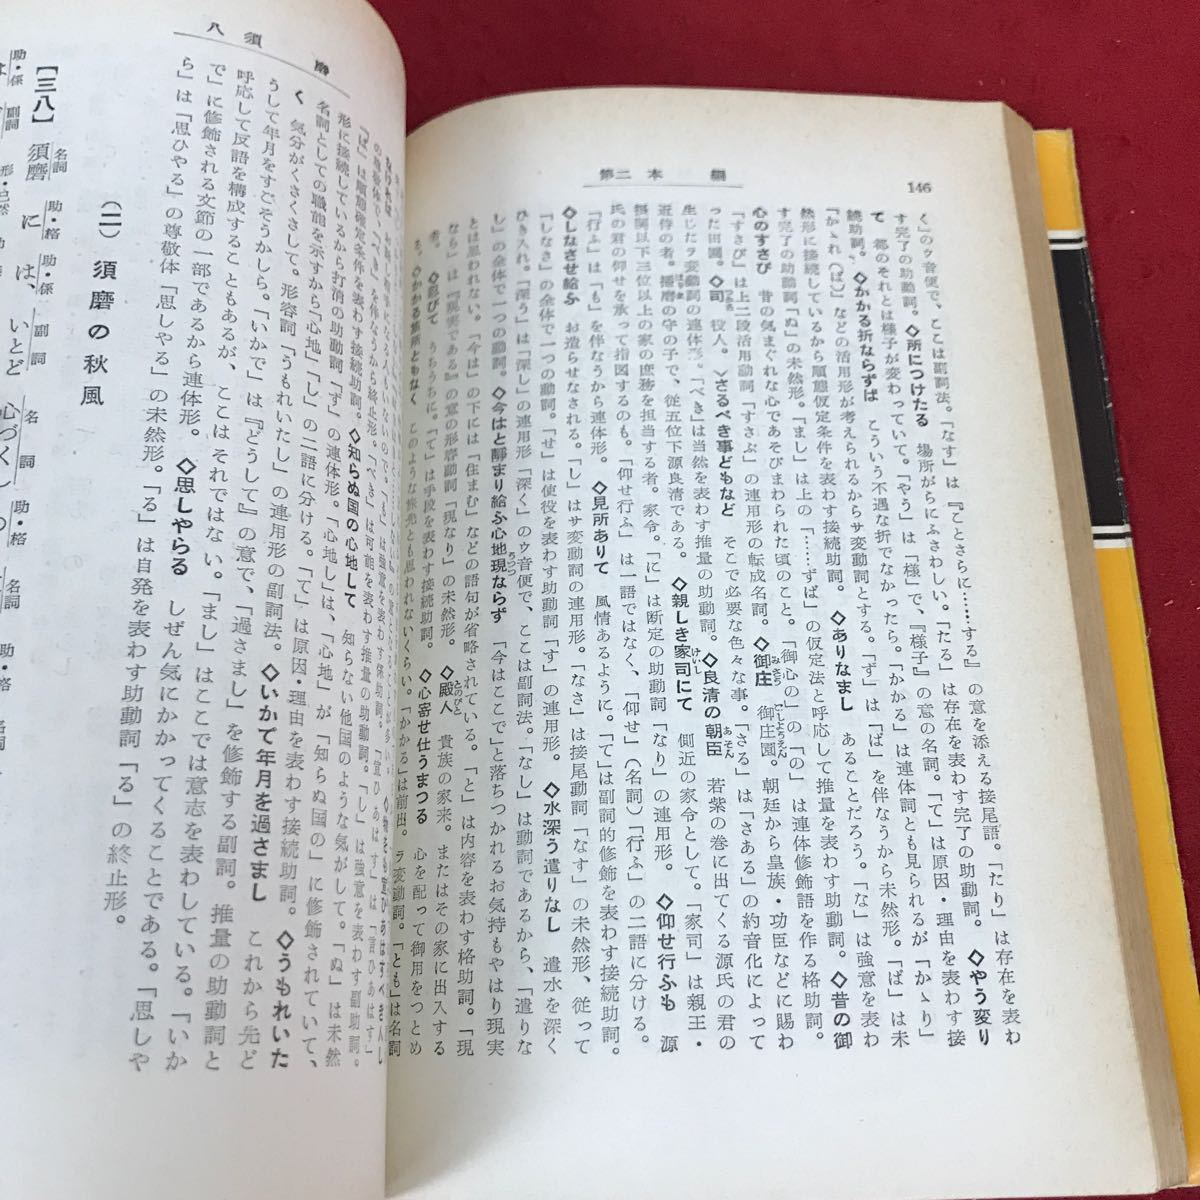 146
第二本編
く」のウ音便で、ここは副詞法。「なす」は『ことさらに……する』の意を添える接尾語。「たり」は存在を表わ
す完了の助動詞。◇所につけたる　場所がらにふさわしい。「たる」は存在を表わす完了の助動詞。◇やう変り
て　都のそれとは様子が変わっていて。「やう」は「様」で、『様子』の意の名詞。「て」は原因・理由を表わす接
続助詞。◇かかる折ならずば　こういう不遇な折でなかったら。「かかる」は連体詞とも見られるが「かゝり」
「かゝれ（ば）」などの活用形が考えられるからラ変動詞とする。「ず」は「ば」を伴なうから未然形。「ば」は未
然形に接続しているから順態仮定条件を表わす接続助詞。◇ありなまし　あることだろう。「な」は強意を表わ
す完了の助動詞「ぬ」の未然形。「まし」は上の「……ずば」の仮定法と呼応して推量を表わす助動詞。◇昔の御
心のすさび　昔の気まぐれな心であそびまわられた頃のこと。「御心の」の「の」は連体修飾語を作る格助詞。
「すさび」は上二段活用動詞「すさぶ」の連用形の転成名詞。◇御庄　御庄園。朝廷から皇族・功臣などに賜わ
った田園。◇司　役人。◇さるべき事どもなど　そこで必要な色々な事。「さる」は「さある」の約音化によって
生じたラ変動詞の連体形。「べき」は当然を表わす推量の助動詞。◇良清の朝臣　若紫の巻に出てくる源氏の君の
近侍の者。播磨の守の子で、従五位下源良清である。◇親しき家司にて　側近の家令として。「家司」は親王・
摂関以下三位以上の家の庶務を担当する者。家令。「に」は断定の助動詞「なり」の連用形。◇仰せ行ふも　源
氏の君の仰せを承って指図するのも。「仰せ行ふ」は一語ではなく、「仰せ」（名詞）「行ふ」の二語に分ける。
「行ふ」は「も」を伴なうから連体形。◇見所ありて　風情あるように。「て」は副詞的修飾を表わす接続助詞。
◇しなさせ給ふ　お造らせなされる。「し」はサ変動詞の連用形。「なさ」は接尾動詞「なす」の未然形、従って
「しなさ」の全体で一つの動詞。「せ」は使役を表わす助動詞「す」の連用形。◇水深う遣りなし　遣水を深く
ひき入れ。「深う」は「深し」の連用形「深く」のウ音便で、ここは副詞法。「なし」は動詞であるから、「遣りな
し」の全体で一つの動詞。◇今はと静まり給ふ心地現ならず　「今はここで」と落ちつかれるお気持もやはり現実
とは思われない。「今は」の下には「住まむ」などの語句が省略されている。「と」は内容を表わす格助詞。「現
なら」は『現実である』の意の形容動詞「現なり」の未然形。◇殿人　貴族の家来。またはその家に出入する
者。◇忍びて　うちうちに。「て」は手段を表わす接続助詞。◇心寄せ仕うまつる　心を配って御用をつとめ
る。◇かかる旅所ともなく　このような旅先とも思われないくらい。「かかる」は前出。ラ変動詞。「とも」は名詞
八須磨
「ば」は順態確定条件を表わす接続助詞。◇知らぬ国の心地して　知らない他国のような気がして。「ぬ」は未然
形に接続しているから打消の助動詞「ず」の連体形。「心地し」は、「心地」が「知らぬ国の」に修飾されていて、
名詞としての職能を示すから「心地」「し」の二語に分ける。「て」は原因・理由を表わす接続助詞。◇うもれいた
く　気分がくさくさして。形容詞「うもれいたし」の連用形の副詞法。◇いかで年月を過さまし　これから先ど
うして年月をすごそうかしら。「いかで」は『どうして』の意で、「過さまし」を修飾する副詞。推量の助動詞と
呼応して反語を構成することもあるが、ここはそれではない。「まし」はここでは意志を表わしている。「いか
で」に修飾される文節の一部であるから連体形。◇思しやらる　しぜん気にかかってくることである。「思しや
ら」は「思ひやる」の尊敬体「思しやる」の未然形。「る」は自発を表わす助動詞「る」の終止形。
（二）須磨の秋風
【三八】須磨には、いとど心づくしの
名詞　助・格　助・係　副詞　名詞　助・格　名詞　助・格　名詞
助・係　副詞　形・已然